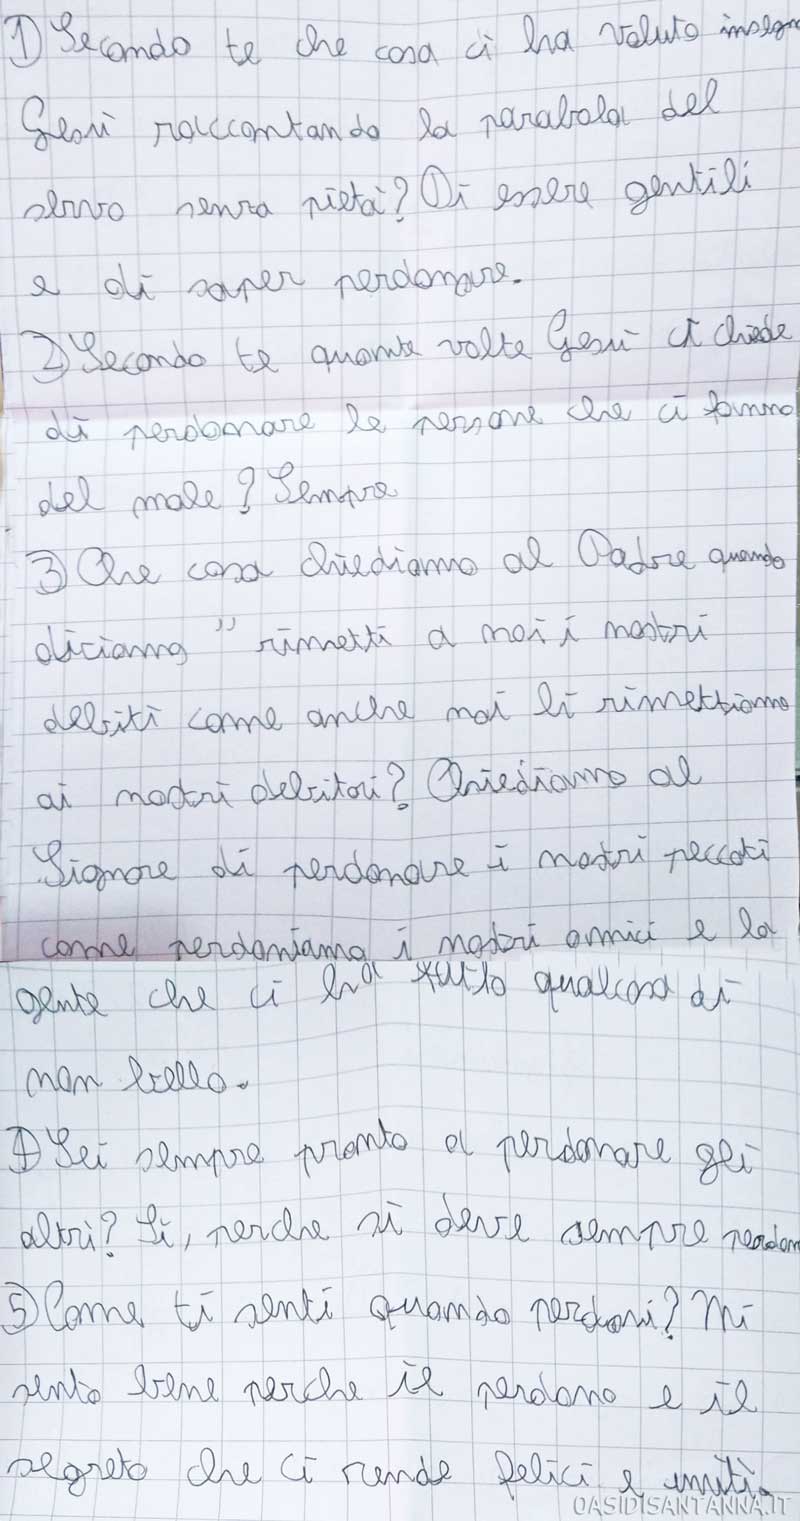 1) Secondo te che cosa ci ha voluto insegn
Gesù raccontando la parabola del
servo senza pietà? Di essere gentili
e di saper perdonare.
2) Secondo te quante volte Gesù ci chiede
di perdonare le persone che ci fanno
del male? Sempre
3) Che cosa chiediamo al Padre quando
diciamo " rimetti a noi i nostri
debiti come anche noi li rimettiamo
ai nostri debitori? Chiediamo al
Signore di perdonare i nostri peccati
come perdoniamo i nostri amici e la
gente che ci ha fatto qualcosa di
non bello.
4) Sei sempre pronto a perdonare gli
altri? Si, perche si deve sempre perdon
5) Come ti senti quando perdoni? Mi
sento bene perche il perdono e il
segreto che ci rende felici e uniti.
OASIDISANTANNA.IT